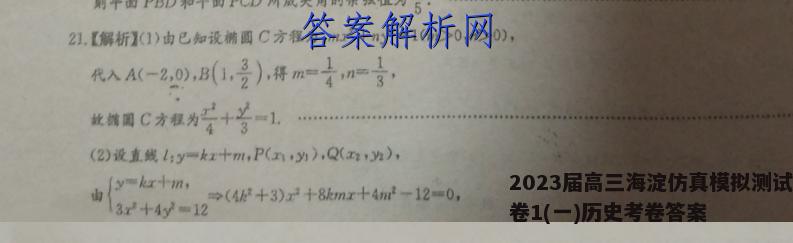 则平面PBD和平面PCD所成夹角的余弦值为 5.
21.【解析】(1)由已知设椭圆C方程
答案解析网
代入A(-2,0),B(1,3/2),得m=1/4,n=1/3,
故椭圆C方程为x²/4+y²/3=1.
(2)设直线l:y=kx+m,P(x₁,y₁),Q(x₂,y₂),
由{y=kx+m, 3x²+4y²=12 ⇒(4k²+3)x²+8kmx+4m²-12=0,
2023届高三海淀仿真模拟测试
卷1(一)历史考卷答案